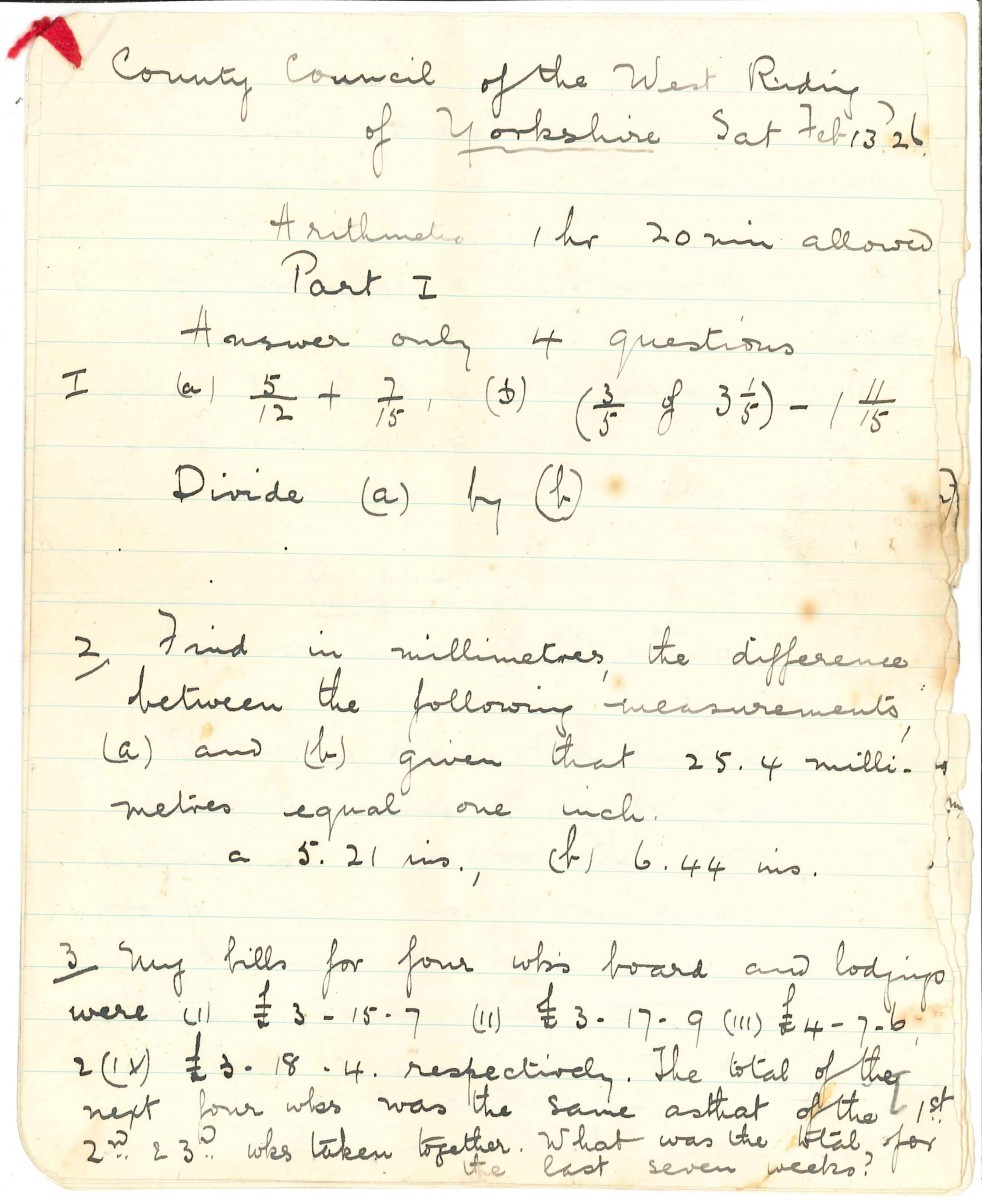 County Council of the West Riding
of Yorkshire Sat Feb 13 26.
Arithmetic 1 hr 20 min allowed
Part I
Answer only 4 questions
I (a) 5/12 + 7/15, (b) (3/5 of 3 1/5) - 1 11/15
Divide (a) by (b)
2, Find in millimetres, the difference
between the following measurements,
(a) and (b) given that 25.4 milli-
metres equal one inch.
a 5.21 ins., (b) 6.44 ins.
3 My bills for four wks board and lodgings
were (1) £3-15-7 (11) £3-17-9 (111) £4-7-6,
& (1V) £3-18-4. respectively. The total of the
next four wks was the same asthat of the 1st
2nd & 3rd wks taken together. What was the total for
the last seven weeks?